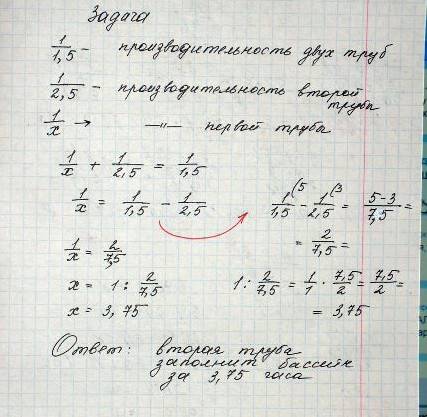 Задача
1/1,5 - производительность двух труб
1/2,5 - производительность второй трубы
1/x → —"— первой трубы
1/x + 1/2,5 = 1/1,5
1/x = 1/1,5 - 1/2,5
1/1,5 (5 - 1/2,5 (3 = 5-3/7,5 =
= 2/7,5 =
1/x = 2/7,5
x = 1 : 2/7,5
1 : 2/7,5 = 1/1 · 7,5/2 = 7,5/2 =
x = 3,75
= 3,75
Ответ: вторая труба
заполнит бассейн
за 3,75 часа